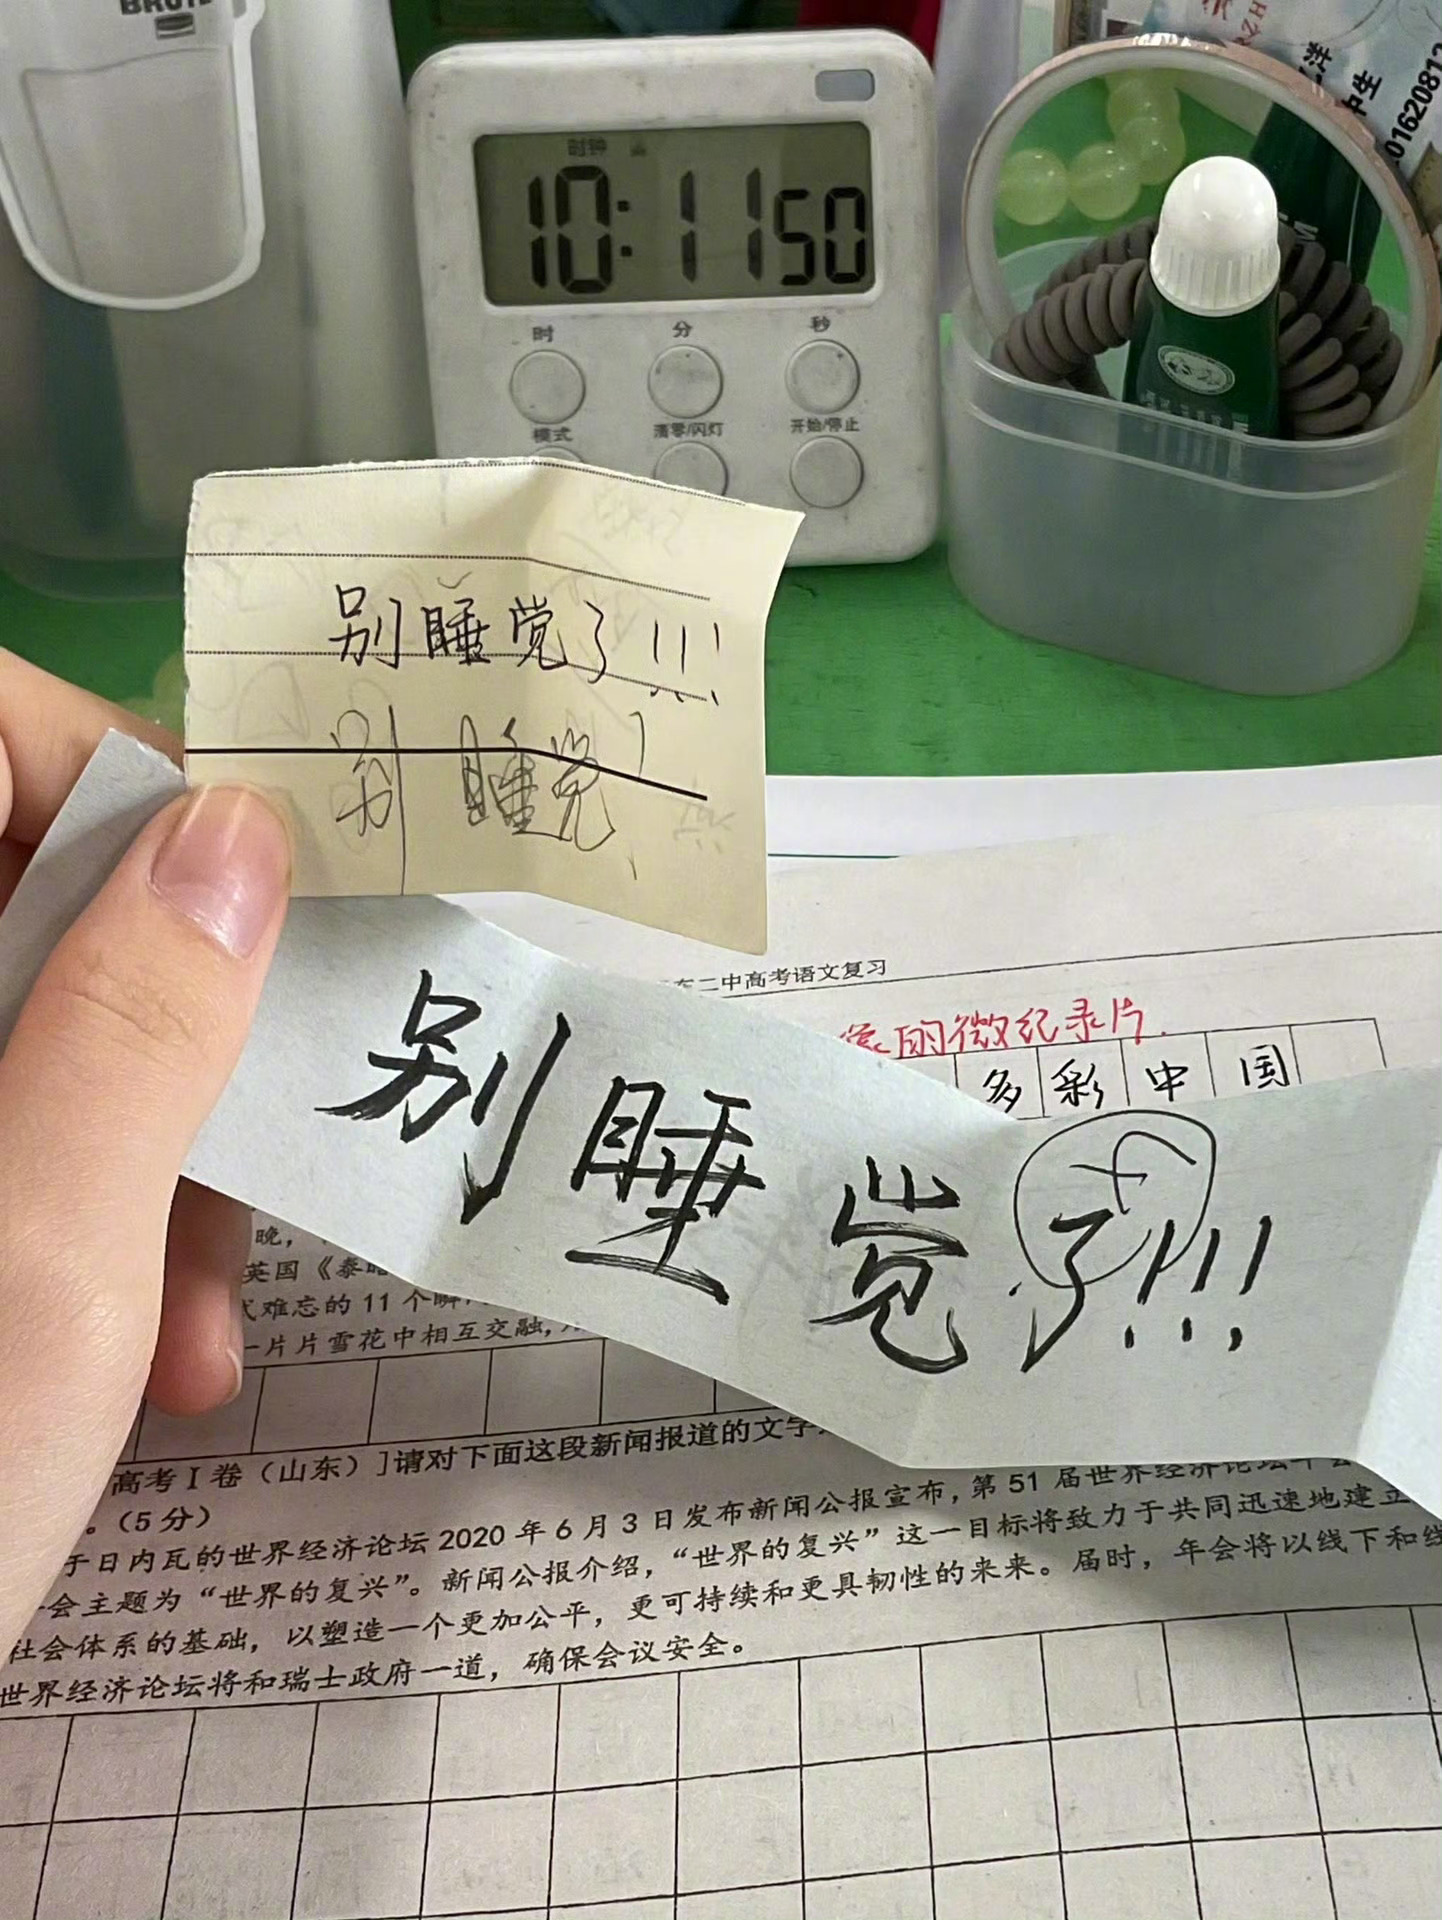 时钟
10:11 50
时 分 秒
模式 清零/闪灯 开始/停止
中生
01620812
别睡觉了!!!
别睡觉!
二中高考语文复习
的微纪录片.
多彩中国
别睡觉了!!!
晚,
英国《泰晤
难忘的11个瞬
一片片雪花中相互交融,
高考I卷(山东)]请对下面这段新闻报道的文字
。(5分)
于日内瓦的世界经济论坛2020年6月3日发布新闻公报宣布,第51届世界经济论坛年会
会主题为“世界的复兴”。新闻公报介绍,“世界的复兴”这一目标将致力于共同迅速地建立
社会体系的基础,以塑造一个更加公平,更可持续和更具韧性的未来。届时,年会将以线下和线
世界经济论坛将和瑞士政府一道,确保会议安全。